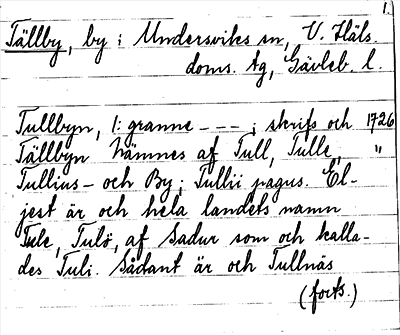 1.
Tällby, by i Undersviks sn, V. Häls.
doms. tg, Gävleb. l.
Tullbyn, 1: granne - - - ; skrifs och 1726
Tällbyn nämnes af Tull, Tulle, "
Tullius- och By; Tullii pagus. El-
jest är och hela landets namn
Tule, Tulö, af Sadur som och kalla-
des Tuli. Sådant är och Tullnäs
(forts.)